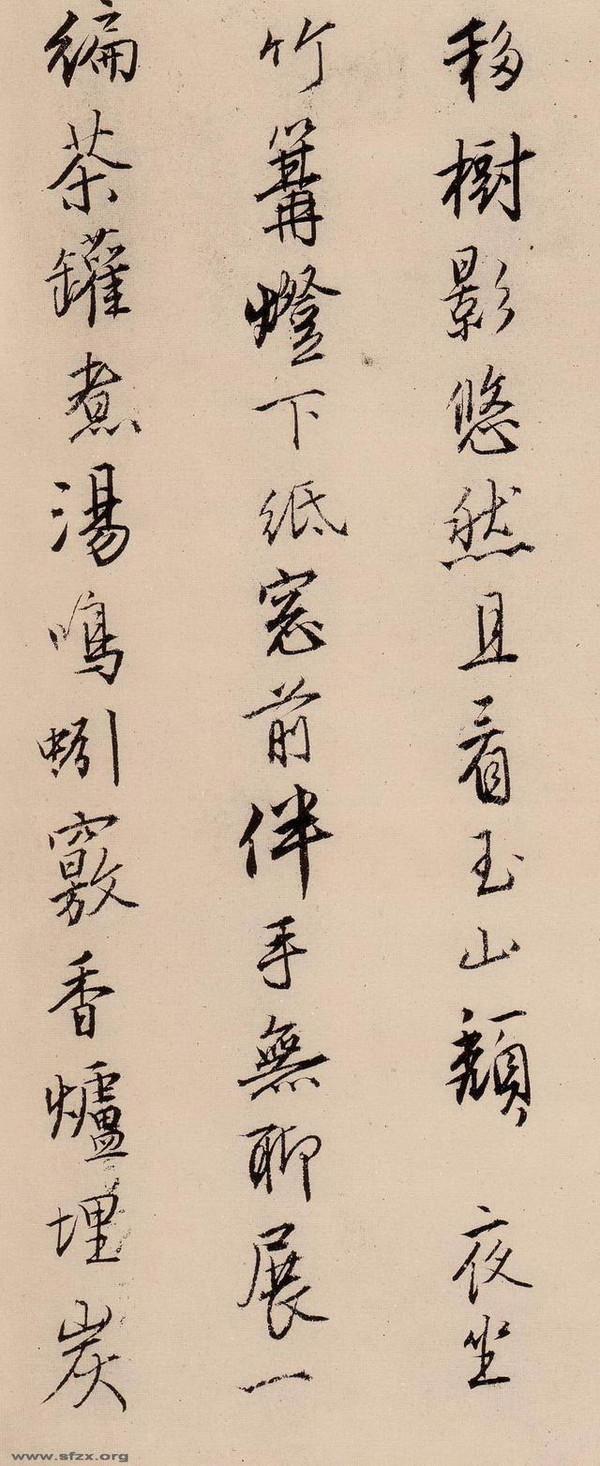 移樹影悠然且看玉山頹 夜坐
竹篝燈下紙窓前伴手無聊展一
編茶罐煮湯鳴蚓竅香爐埋炭
www.sfzx.org